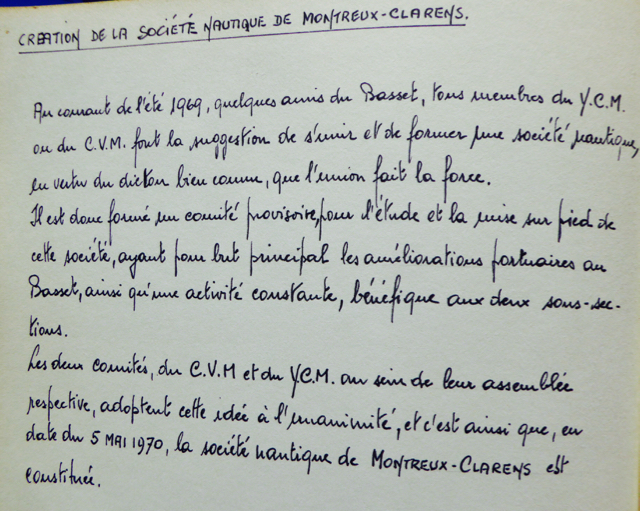 CREATION DE LA SOCIÉTÉ NAUTIQUE DE MONTREUX-CLARENS.
Au courant de l'été 1969, quelques amis du Basset, tous membres du Y.C.M.
ou du C.V.M. font la suggestion de s'unir et de former une société nautique,
en vertu du dicton bien connu, que l'union fait la force.
Il est donc formé un comité provisoire, pour l'étude et la mise sur pied de
cette société, ayant pour but principal les améliorations portuaires au
Basset, ainsi qu'une activité constante, bénéfique aux deux sous-sec-
tions.
Les deux comités, du C.V.M et du Y.C.M. au sein de leur assemblée
respective, adoptent cette idée à l'unanimité, et c'est ainsi que, en
date du 5 MAI 1970, la société nautique de MONTREUX-CLARENS est
constituée.